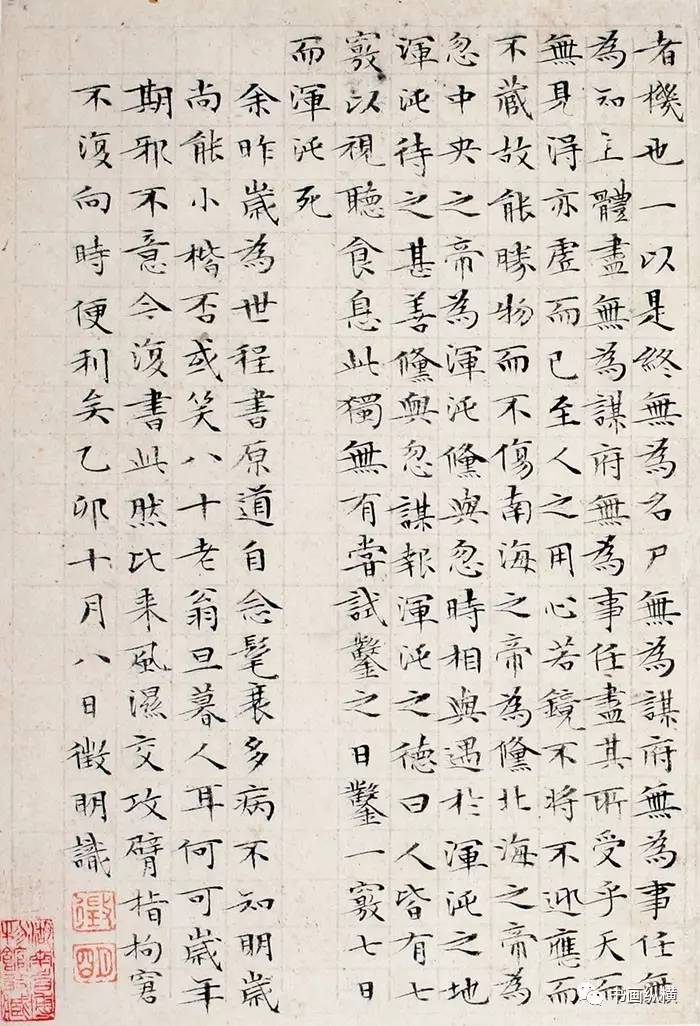 者機也一以是終無為名尸無為謀府無為事任無
為知主體盡無為謀府無為事任盡其所受乎天而
無見得亦虛而已至人之用心若鏡不將不迎應而
不藏故能勝物而不傷南海之帝為儵北海之帝為
忽中央之帝為渾沌儵與忽時相與遇於渾沌之地
渾沌待之甚善儵與忽謀報渾沌之德曰人皆有七
竅以視聽食息此獨無有嘗試鑿之日鑿一竅七日
而渾沌死
余昨歲為世程書原道自念髦衰多病不知明歲
尚能小楷否或笑八十老翁旦暮人耳何可歲年
期邪不意今復書此然比来風濕交攻臂指拘窘
不復向時便利矣乙卯十月八日徵明識
徵
明
书画纵横